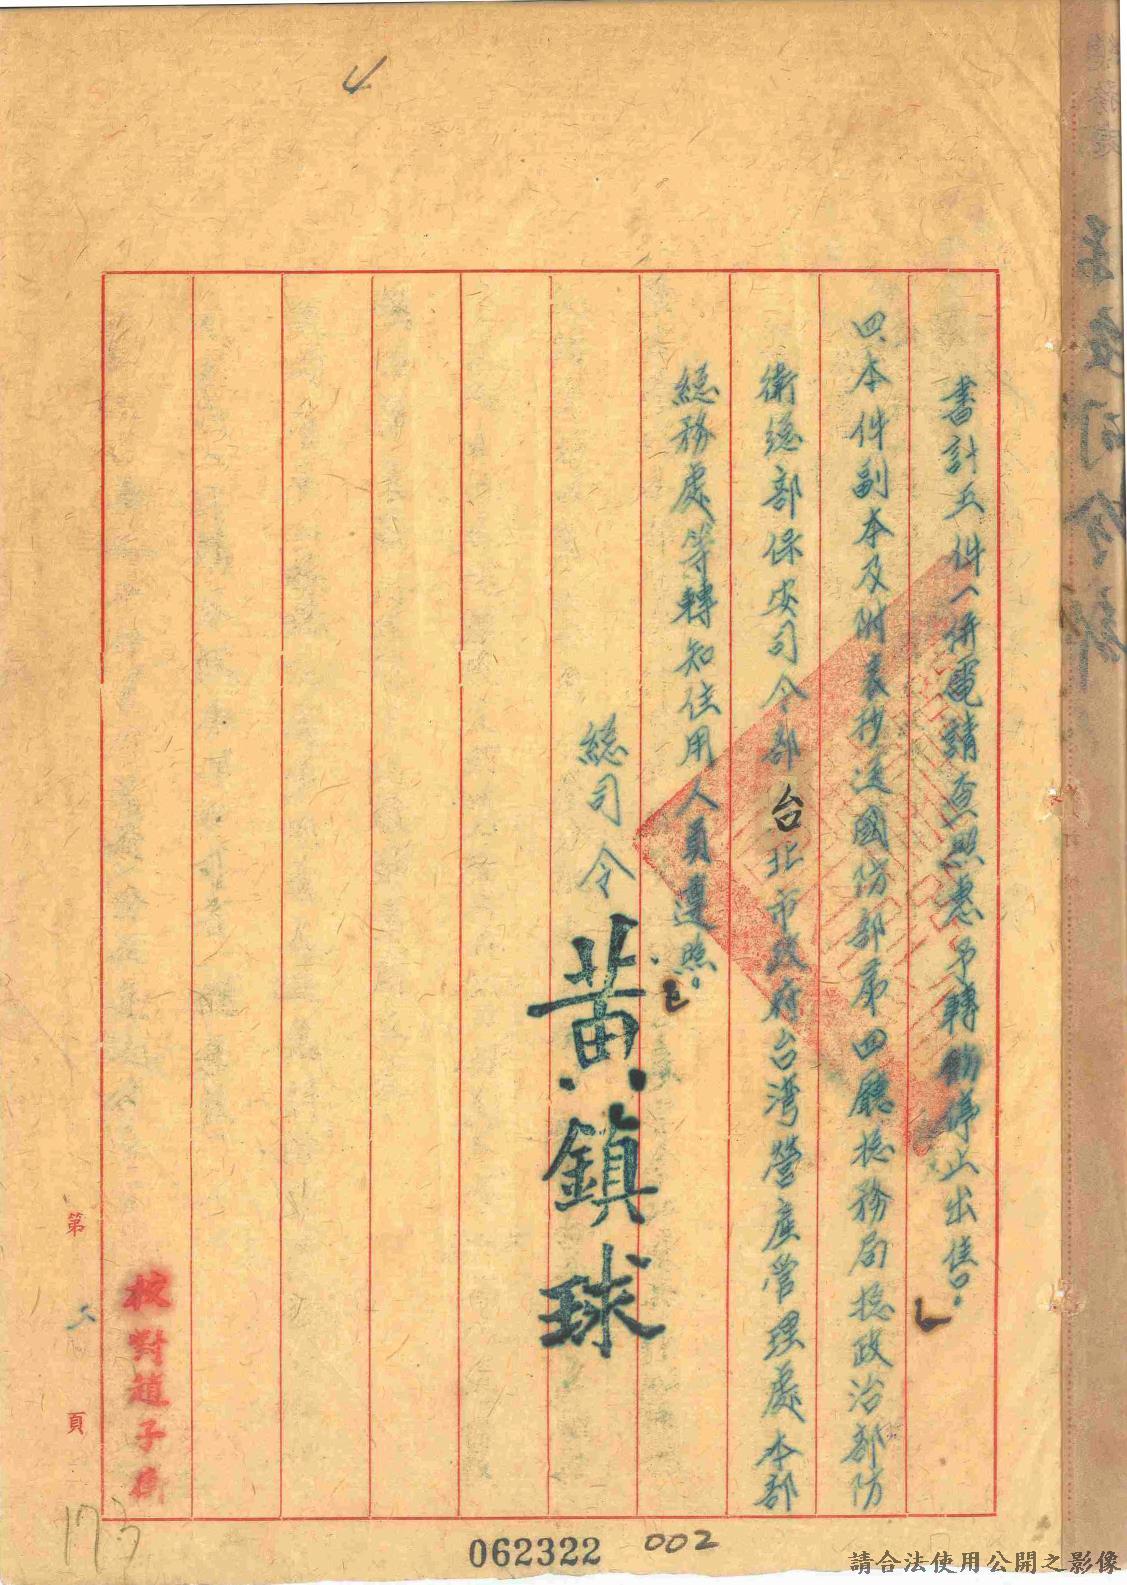 書計五件（併電請查照惠予轉飭停止出售。
四、本件副本及附表抄送國防部第四廳總務局總政治部防
衛總部保安司令部台北市政府台灣營産管理處本部
總務處等轉知住用人員遵照。
總司令黃鎮球
校對趙子
第
頁
4
173
062322
002
請合法使用公開之影像